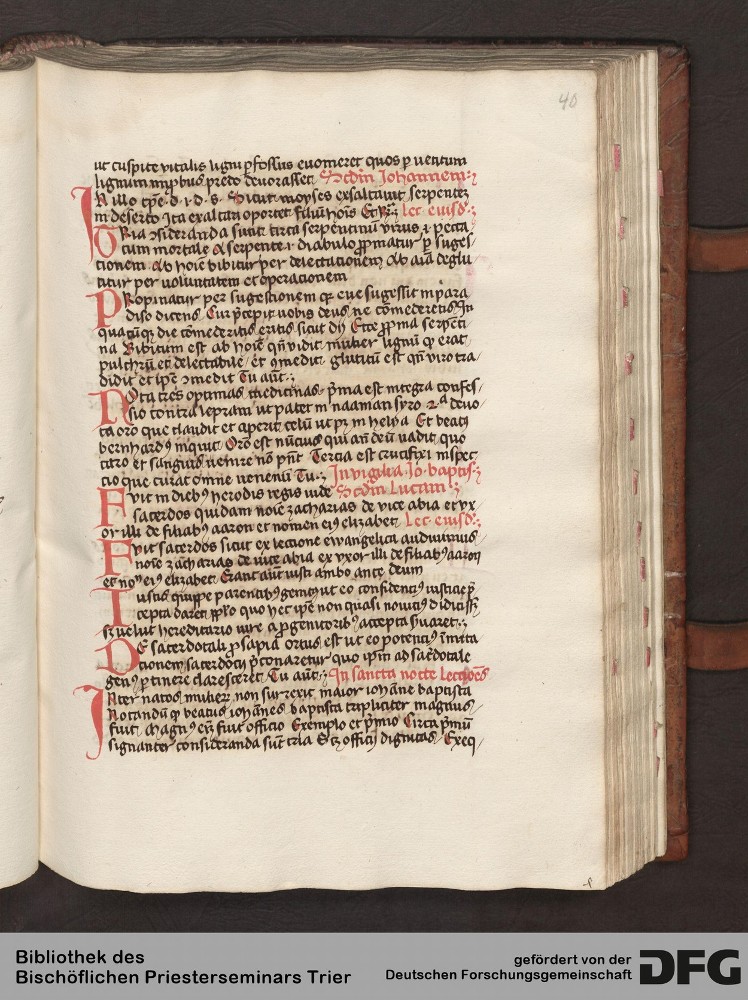 40
ut cuspite vitalis ligni ꝑfossus euomeret quos ꝑ uetitum
lignum predo deuorasset. Scdm Johannem:
In illo tpe d. i. d. s. Sicut moyses exaltauit serpentez
in deserto Ita exaltari oportet filiū hoīs Et R: Lec. eiusd:
Tria ꝯsideranda sunt circa serpentinū virus. i. pecca
tum mortale A serpente. i. diabulo ꝓpinatur ꝑ suges/
tionem Ab hoīe bibitur per delectationem Ab aīa deglu
titur per uoluntatem et operacionem
Propinatur per sugestionem qꝫ eue sugessit in para
diso dicens. Cur p̄cepit uobis deus ne comederetis In
quacūqꝫ die comederitis eritis sicut dij Ecce serpenti
na Bibitum est ab hoīe qn̄ vidit mulier lignū qꝫ erat
pulchrū et delectabile et ꝯmedit. glutitū est qn̄ viro tra/
didit et ip̄e ꝯmedit Tu aūt:
Nota tres optimas medicinas. p̄ma est integra confes/
sio contra lepram ut patet in naaman syro 2.ª deuo
ta orō que claudit et aperit celū ut pꝫ in helya Et beatꝰ
bernhardꝰ inquit. Orō est nūcius qui an̄ deū uadit. quo
caro et sanguis uenire nō pn̄t Tercia est crucifixi inspec
cio que curat omne uenenū Tu: In vigilia Jo. baptis:
Fvit in diebꝰ herodis regis iude Scdm Lucam:
sacerdos quidam noīe zacharias de vice abia et vx
or illi de filiabꝰ aaron et nomen eiꝰ elizabet. Lec. eiusd:
Fvit sacerdos sicut ex lectione ewangelica audiuimus
noīe zacharias de uice abia ex vxor illi de filiabꝰ aaron
et noͫ eiꝰ elizabet. Erant aūt iusti ambo ante deum
Iustis quippe parentibꝰ genitꝰ ut eo confidentiꝰ iusticie p̄
cepta daret quo hec ip̄e non quasi nouiciꝰ didicissꝫ
sꝫ uelut hereditario iure a ꝓgenitoribꝰ accepta suaret:
De sacerdotali ꝓsapia ortus est ut eo potentiꝰ īmuta
tionem sacerdocij p̄conaretur quo ip̄m ad sacerdotale
genꝰ ꝑtinere claresceret. Tu aūt: In sancta nocte Lectiōes
Inter natos mulierꝫ non surrexit maior iohāne baptista
Notandū qꝫ beatus iohānes baptista tripliciter magnus
fuit. Magnꝰ em̄ fuit officio Exemplo et p̄mio Circa p̄mū
signanter consideranda sūt tria Scꝫ officij dignitas. Exeq/
Bibliothek des
Bischöflichen Priesterseminars Trier
gefördert von der
Deutschen Forschungsgemeinschaft
DFG